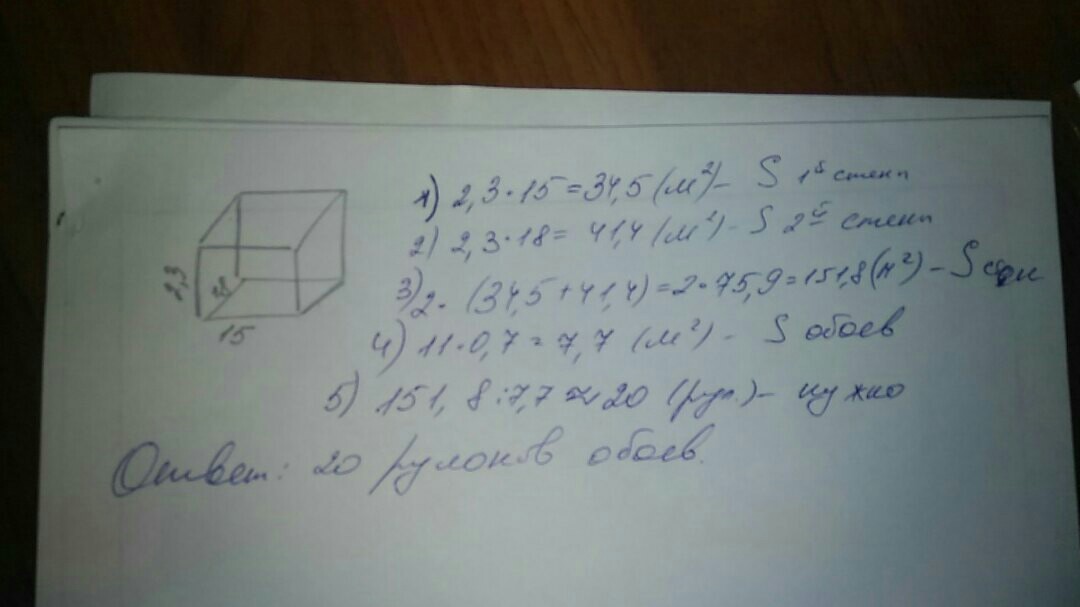 2,3
18
15
1) 2,3·15=34,5(м²)- S 1й стены
2) 2,3·18= 41,4(м²)- S 2й стены
3) 2·(34,5+41,4)=2·75,9=151,8(м²) - S стен
4) 11·0,7=7,7 (м²) - S обоев
5) 151,8:7,7≈20 (рул.)- нужно
Ответ: 20 рулонов обоев.